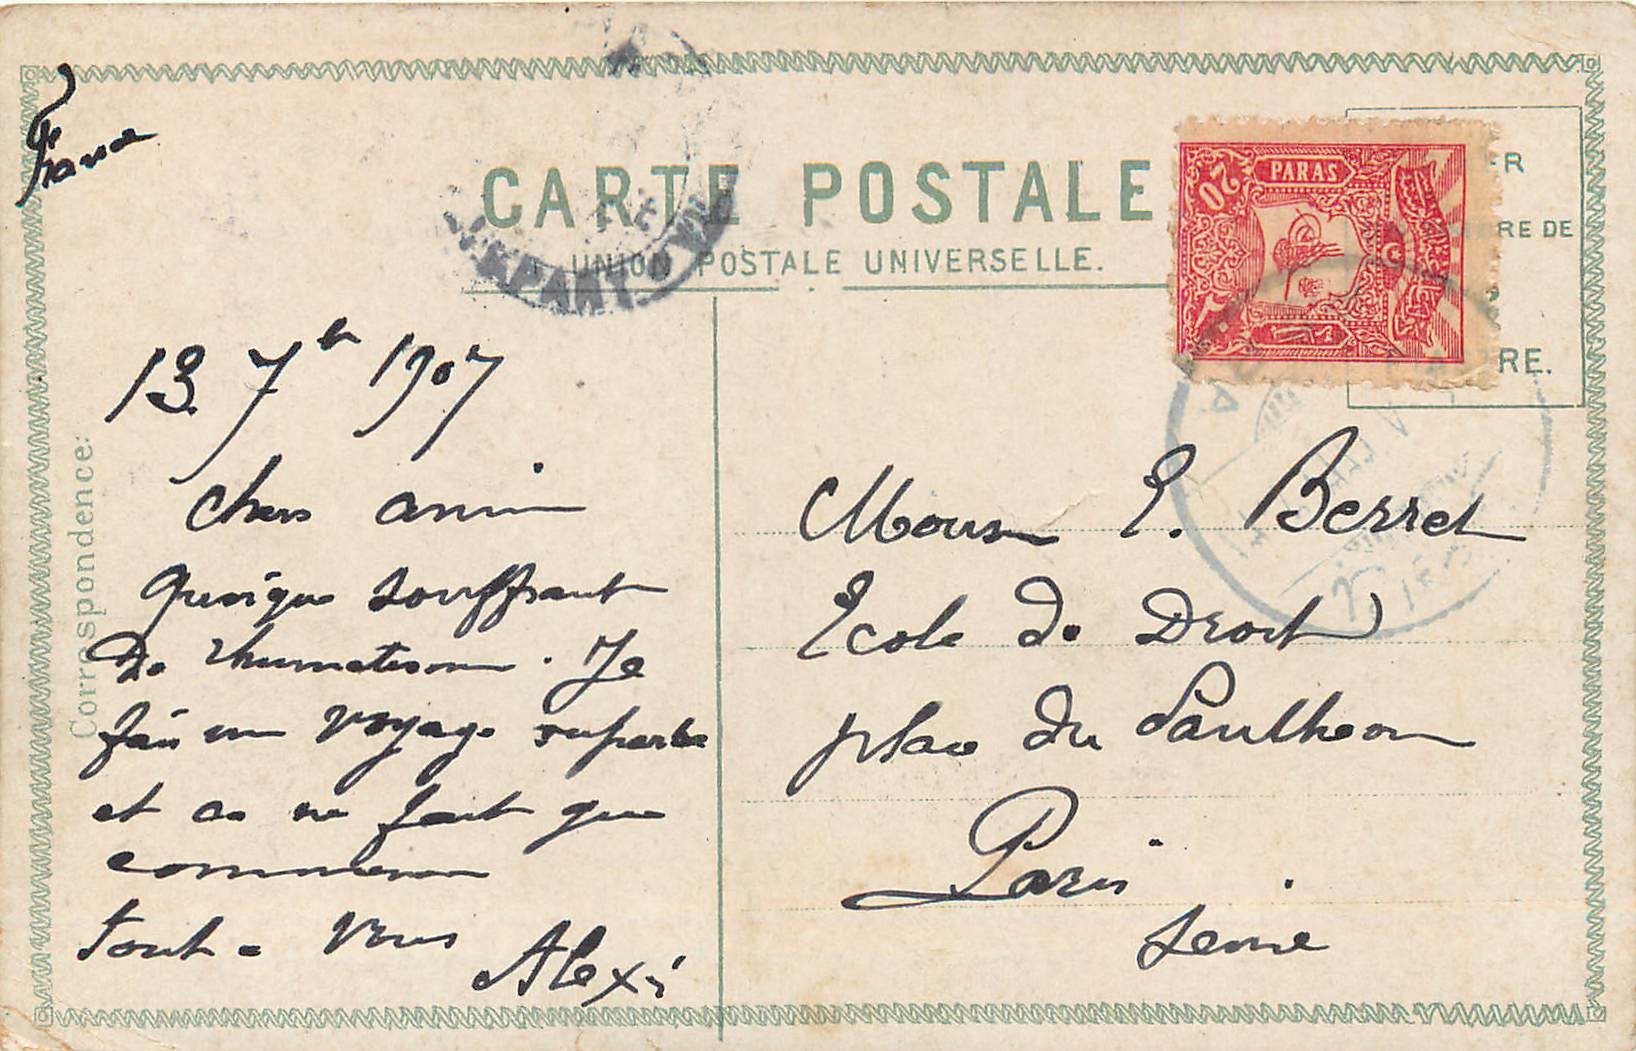 France
CARTE POSTALE
UNION POSTALE UNIVERSELLE.
20 PARAS
RE DE
RE.
Correspondence:
13. 7bre 1907
Chers amis
Quoique souffrant
de rhumatisme. Je
fais un voyage superbe
et ça ne fait que
commencer
Tout à vous
Alexis
Monsieur E. Berret
Ecole de Droit
place du Panthéon
Paris
Seine